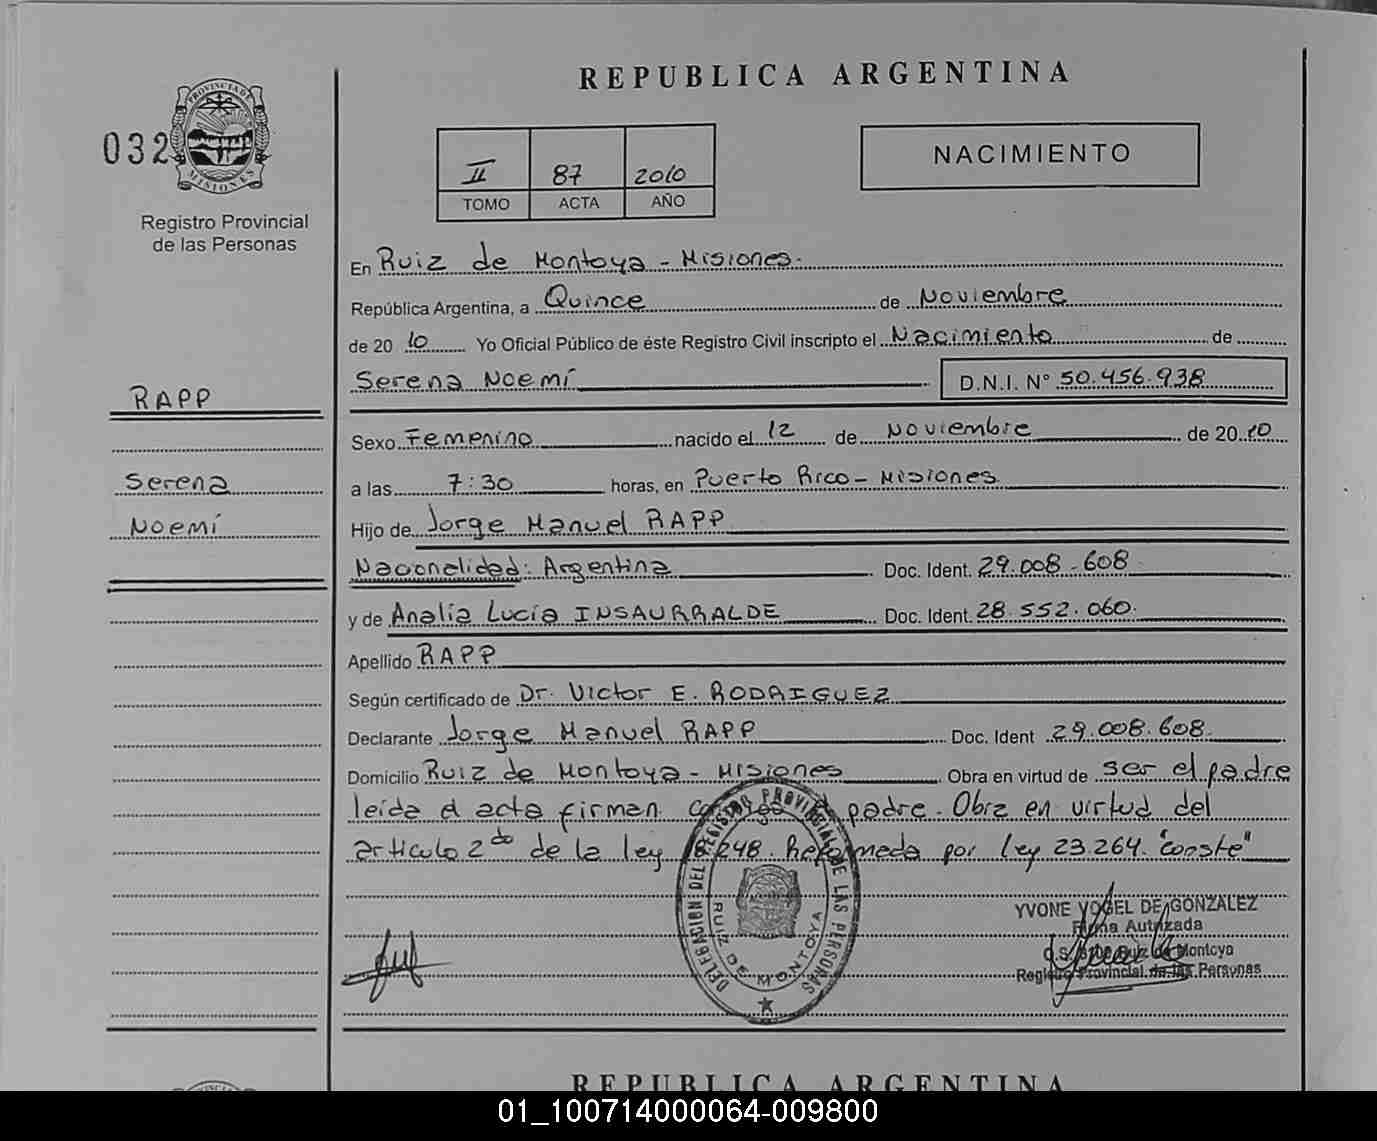 REPUBLICA ARGENTINA
PROVINCIA DE MISIONES
032
Registro Provincial
de las Personas
II 87 2010
TOMO ACTA AÑO
NACIMIENTO
En Ruiz de Montoya - Misiones.
República Argentina, a Quince de Noviembre
de 20 10 Yo Oficial Público de éste Registro Civil inscripto el Nacimiento de
Serena Noemí D.N.I. N° 50.456.938
RAPP
Serena
Noemí
Sexo Femenino nacido el 12 de Noviembre de 20 10
a las 7:30 horas, en Puerto Rico - Misiones
Hijo de Jorge Manuel RAPP
Nacionalidad: Argentina Doc. Ident. 29.008.608
y de Analía Lucía INSAURRALDE Doc. Ident. 28.552.060.
Apellido RAPP
Según certificado de Dr. Victor E. RODRIGUEZ
Declarante Jorge Manuel RAPP Doc. Ident 29.008.608.
Domicilio Ruiz de Montoya - Misiones Obra en virtud de ser el padre
leída el acta firman padre. Obra en virtud del
articulo 2do de la ley 18.248. Reformada por ley 23.264. "conste"
DELEGACION DEL REGISTRO PROVINCIAL DE LAS PERSONAS
RUIZ DE MONTOYA
YVONE VOGEL DE GONZALEZ
Firma Autorizada
Ruiz de Montoya
Registro Provincial de las Personas
REPUBLICA ARGENTINA
01_100714000064-009800